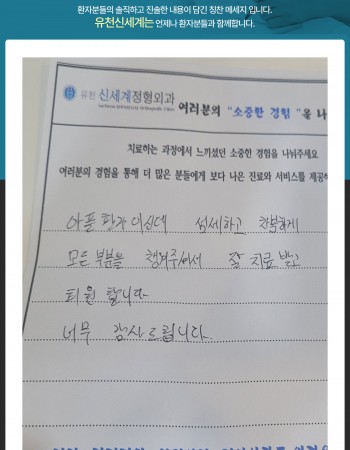 환자분들의 솔직하고 진솔한 내용이 담긴 칭찬 메세지 입니다.
유천신세계는 언제나 환자분들과 함께합니다.
유천 신세계정형외과 여러분의 "소중한 경험"을 나
치료하는 과정에서 느끼셨던 소중한 경험을 나눠주세요
여러분의 경험을 통해 더 많은 분들에게 보다 나은 진료와 서비스를 제공하
아픈 환자 이신데 섬세하고 차분하게
모든 부분을 챙겨주셔서 잘 치료 받고
퇴원 합니다
너무 감사드립니다.